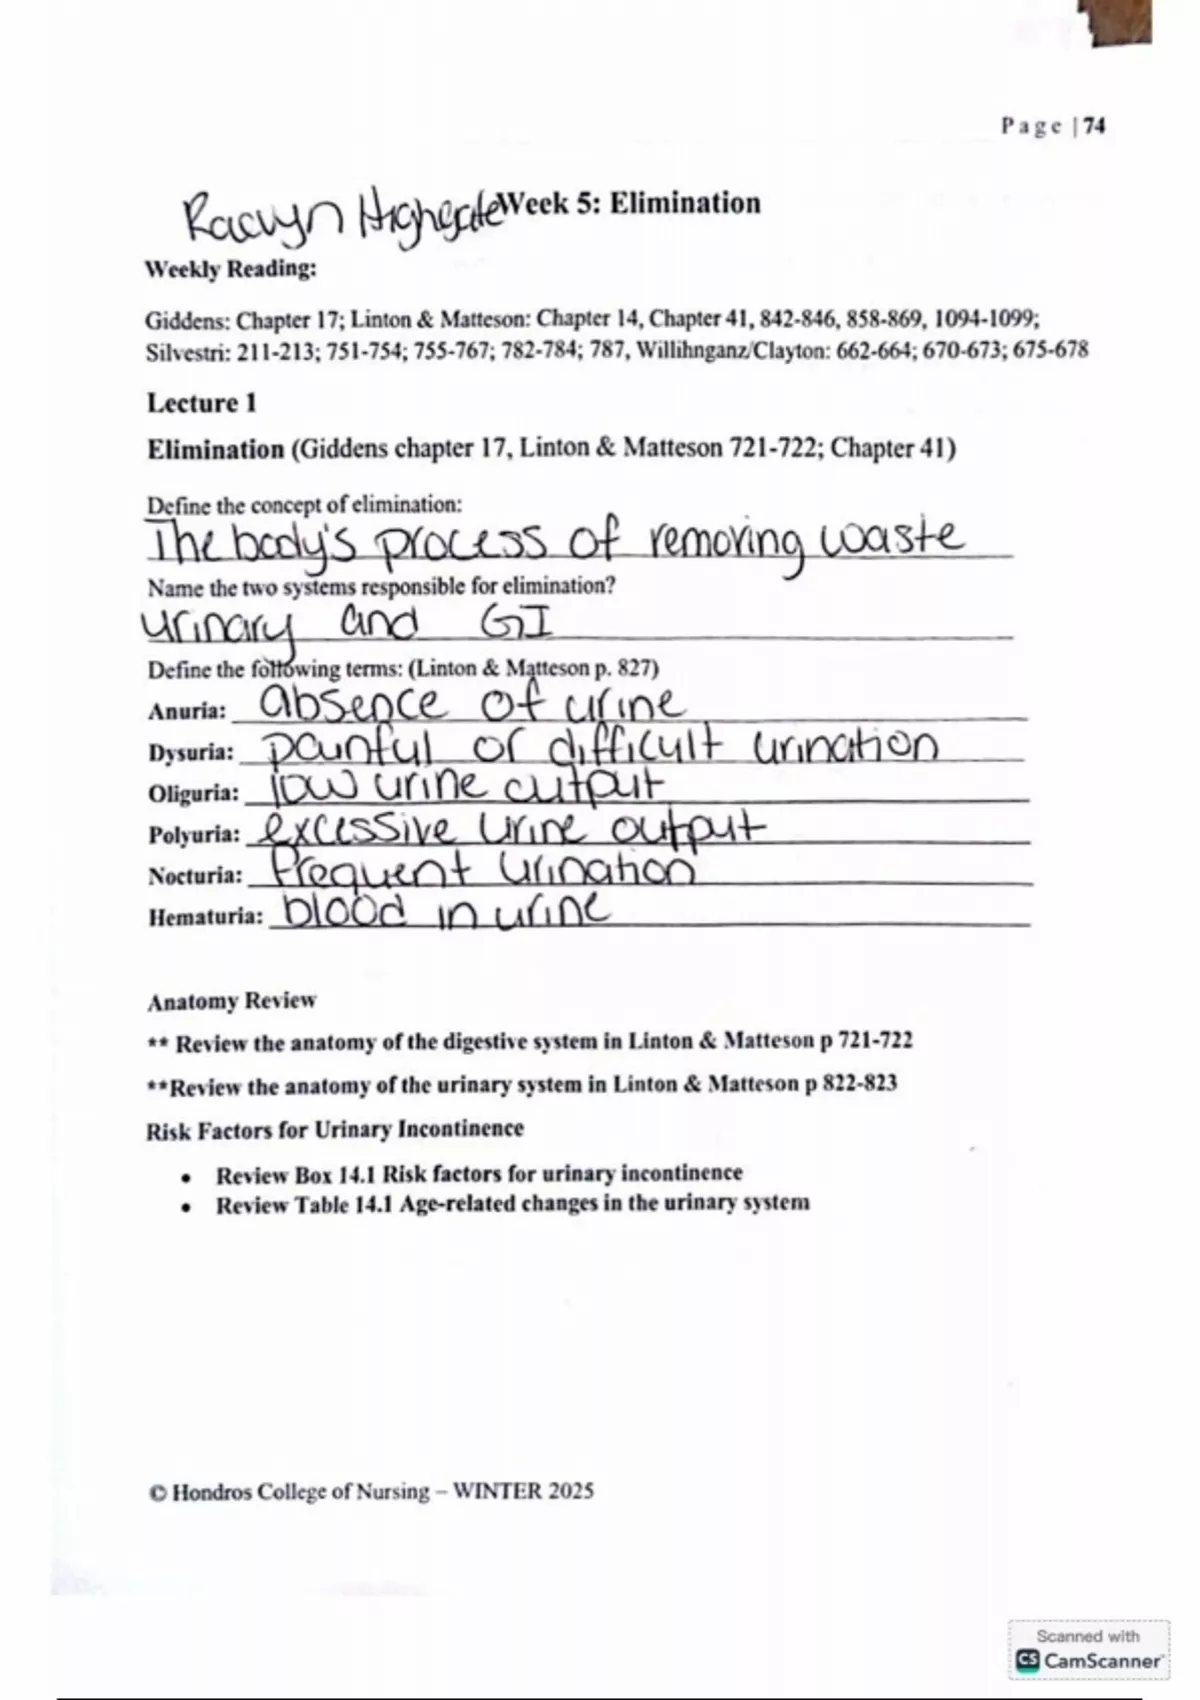 Page | 74
Week 5: Elimination
Weekly Reading:
Giddens: Chapter 17; Linton & Matteson: Chapter 14, Chapter 41, 842-846, 858-869, 1094-1099;
Silvestri: 211-213; 751-754; 755-767; 782-784; 787, Willihnganz/Clayton: 662-664; 670-673; 675-678
Lecture 1
Elimination (Giddens chapter 17, Linton & Matteson 721-722; Chapter 41)
Define the concept of elimination:
The body's process of removing waste
Name the two systems responsible for elimination?
urinary and GI
Define the following terms: (Linton & Matteson p. 827)
Anuria: absence of urine
Dysuria: painful or difficult urination
Oliguria: low urine output
Polyuria: excessive urine output
Nocturia: frequent urination
Hematuria: blood in urine
Anatomy Review
** Review the anatomy of the digestive system in Linton & Matteson p 721-722
**Review the anatomy of the urinary system in Linton & Matteson p 822-823
Risk Factors for Urinary Incontinence
• Review Box 14.1 Risk factors for urinary incontinence
• Review Table 14.1 Age-related changes in the urinary system
© Hondros College of Nursing – WINTER 2025
Scanned with
CS CamScanner